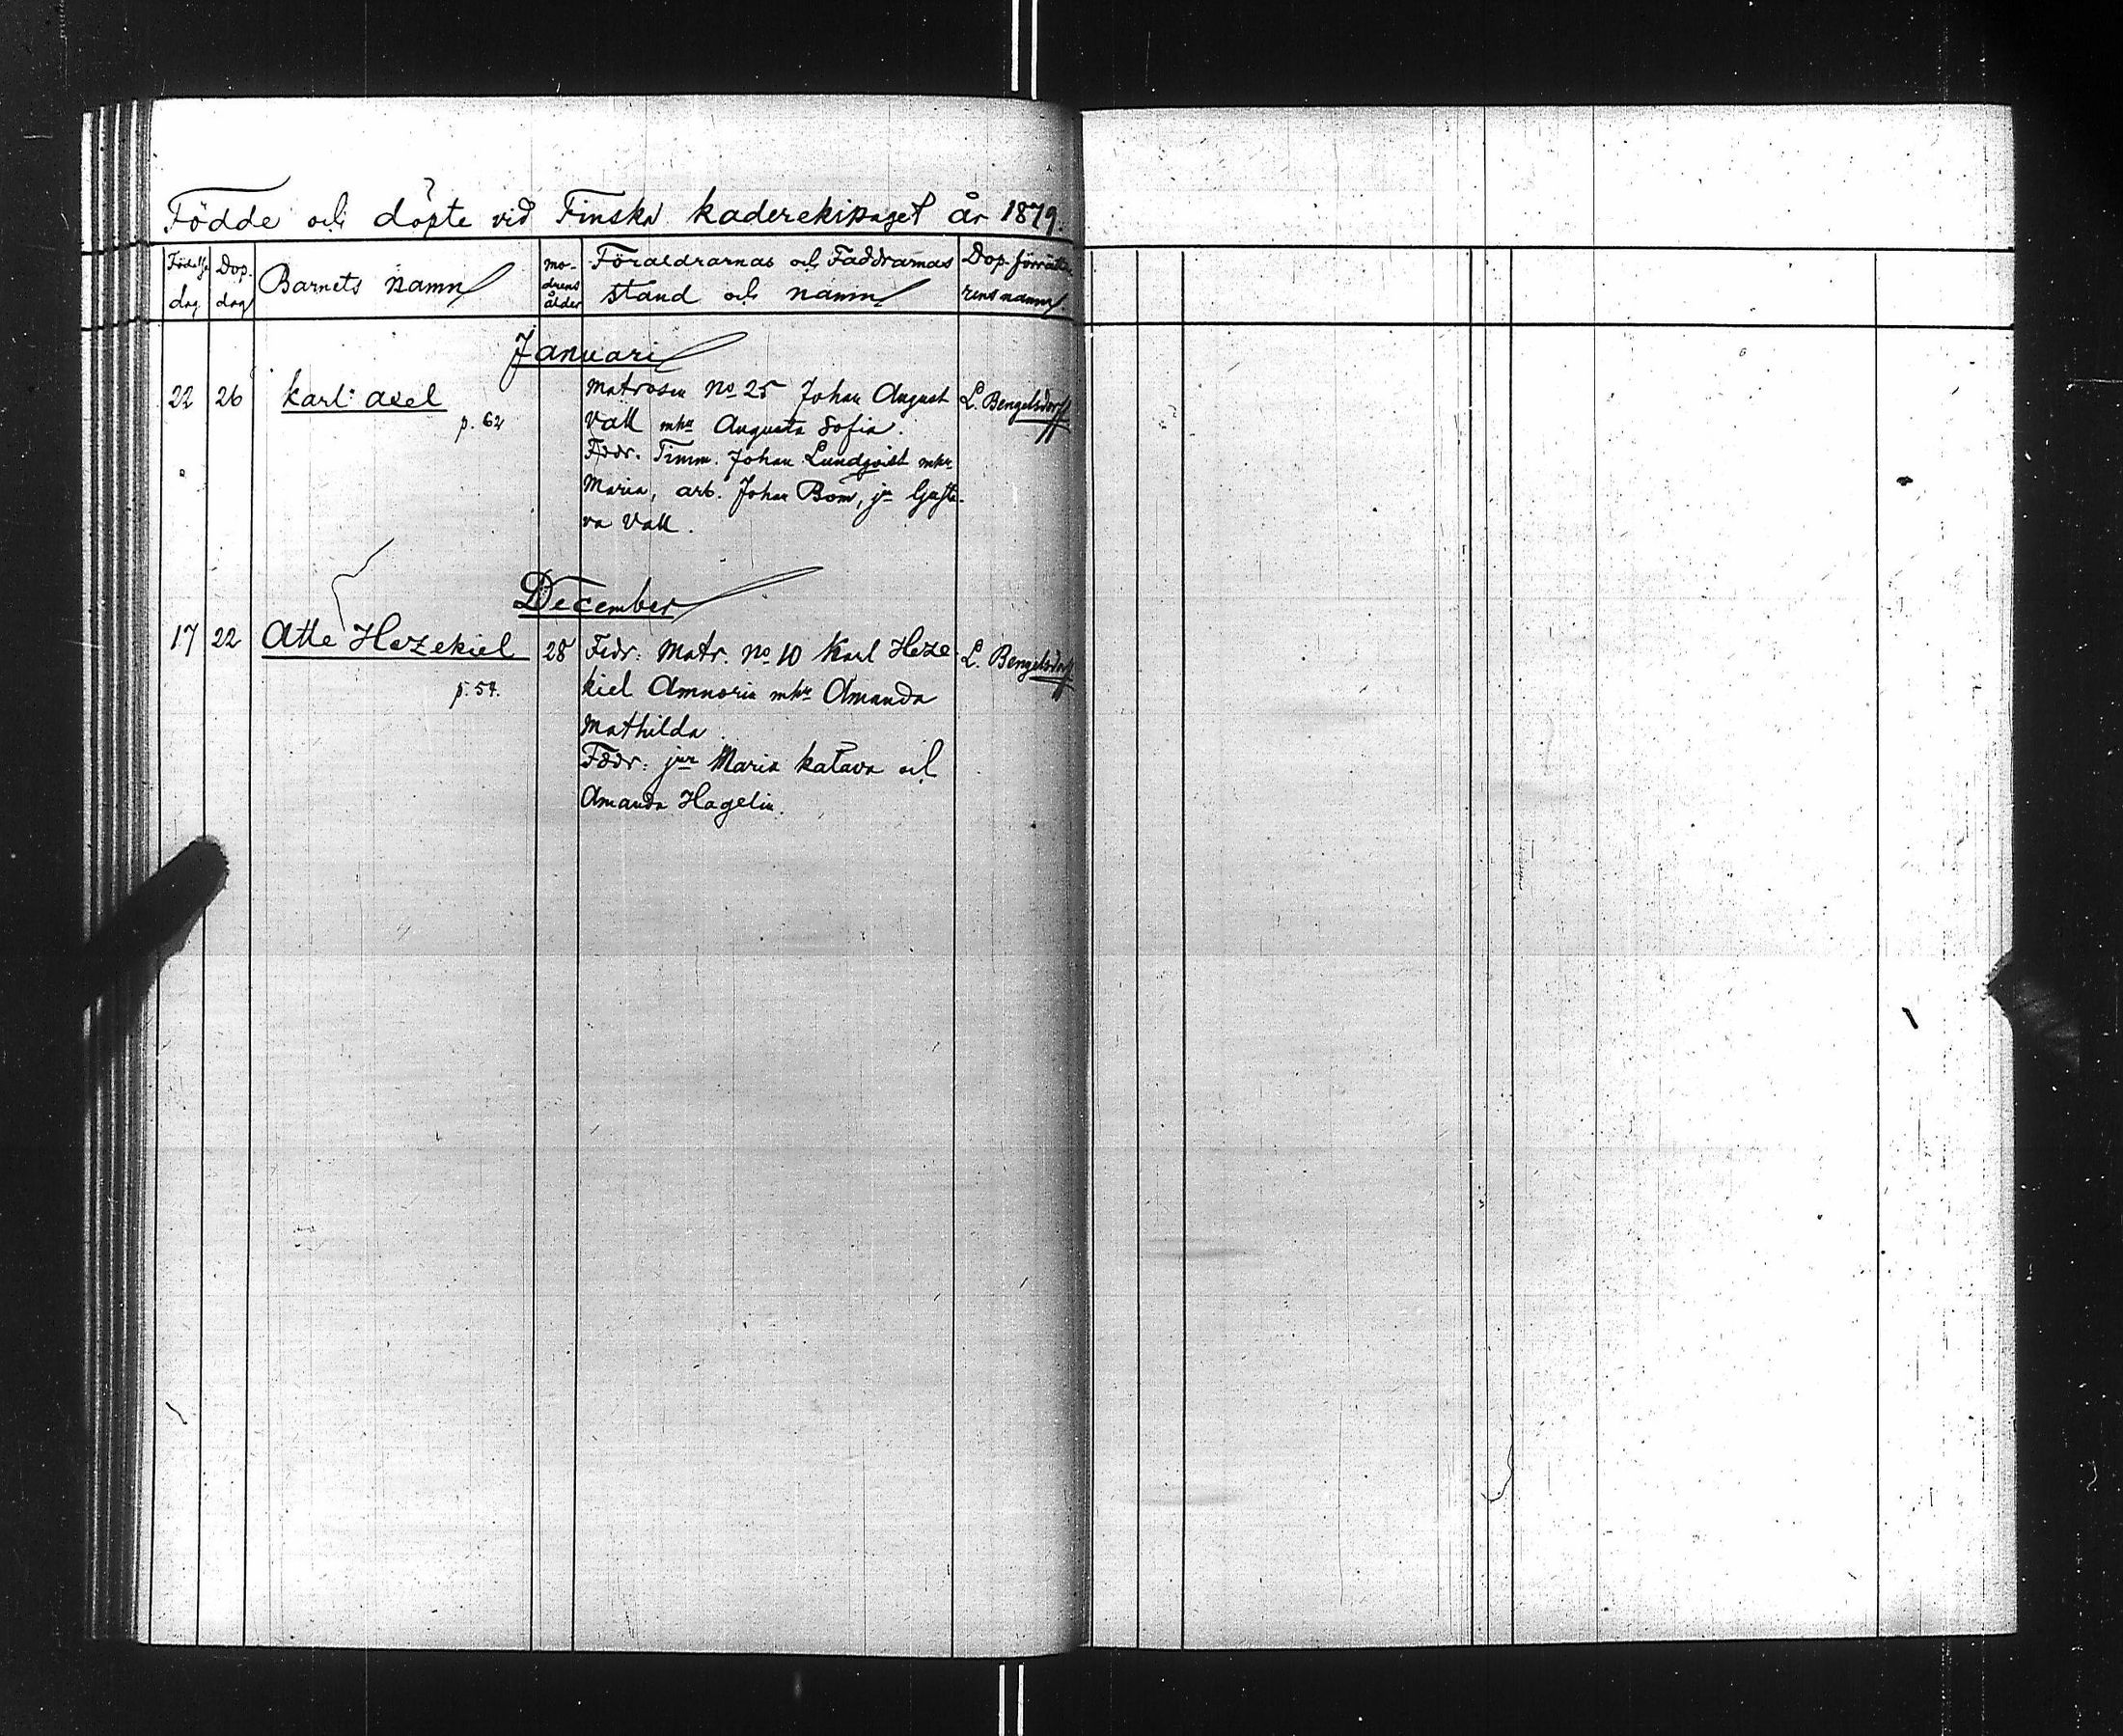 Födde och döpte vid Finska kaderekipaget år 1879.
Födelse dag
Dop. dag
Barnets namn
mo-
drens
ålder
Föraldrarnas och Faddrarnas
stand och namn
Dop-förrätta-
rens namn
Januari
22 26 Karl Axel
p. 62
Matrosen No 25 Johan August
Vall mhu Augusta Sofia.
Fddr. Timm. Johan Lundqvist mhr
Maria, arb. Johan Bom, jn Gusta-
va Vall.
L. Bengelsdorff
December
17 22 Atte Hezekiel
p. 54.
28
Fldr: Matr. No 10 Karl Heze
kiel Amnoria mhr Amanda
Mathilda.
Fddr: jnr Maria Katava och
Amanda Hagelin.
L. Bengelsdorff